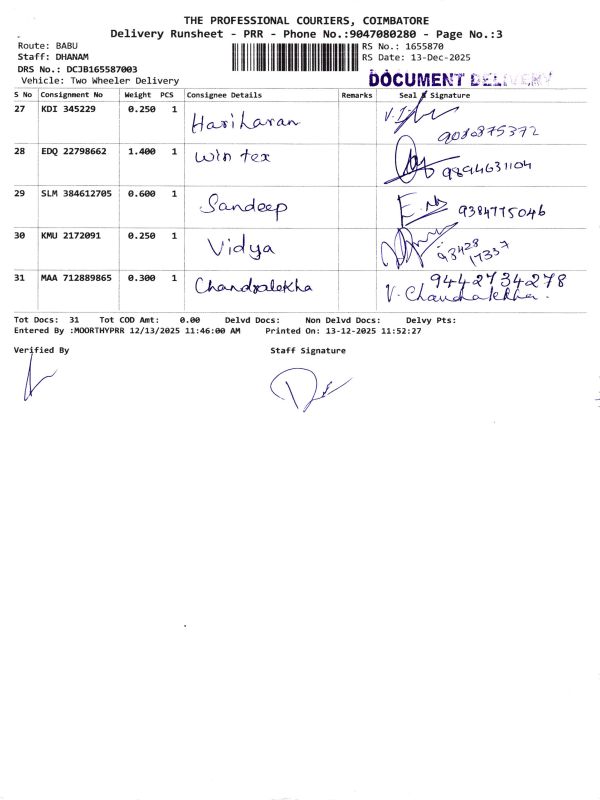 THE PROFESSIONAL COURIERS, COIMBATORE
Delivery Runsheet - PRR - Phone No.:9047080280 - Page No.:3
Route: BABU RS No.: 1655870
Staff: DHANAM RS Date: 13-Dec-2025
DRS No.: DCJB165587003
Vehicle: Two Wheeler Delivery DOCUMENT DELIVERY
S No Consignment No Weight PCS Consignee Details Remarks Seal & Signature
27 KDI 345229 0.250 1 Hariharan
9080875372
28 EDQ 22798662 1.400 1 Win tex 9894631104
29 SLM 384612705 0.600 1 Sandeep 9384775046
30 KMU 2172091 0.250 1 Vidya 93428
17337
31 MAA 712889865 0.300 1 Chandralekha 9442734278
V. Chandralekha.
Tot Docs: 31 Tot COD Amt: 0.00 Delvd Docs: Non Delvd Docs: Delvy Pts:
Entered By :MOORTHYPRR 12/13/2025 11:46:00 AM Printed On: 13-12-2025 11:52:27
Verified By Staff Signature